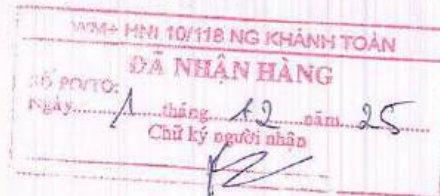 WM+ HNI 10/118 NG KHÁNH TOÀN
ĐÃ NHẬN HÀNG
SỐ PO/TO:
Ngày 1 tháng 12 năm 25
Chữ ký người nhận